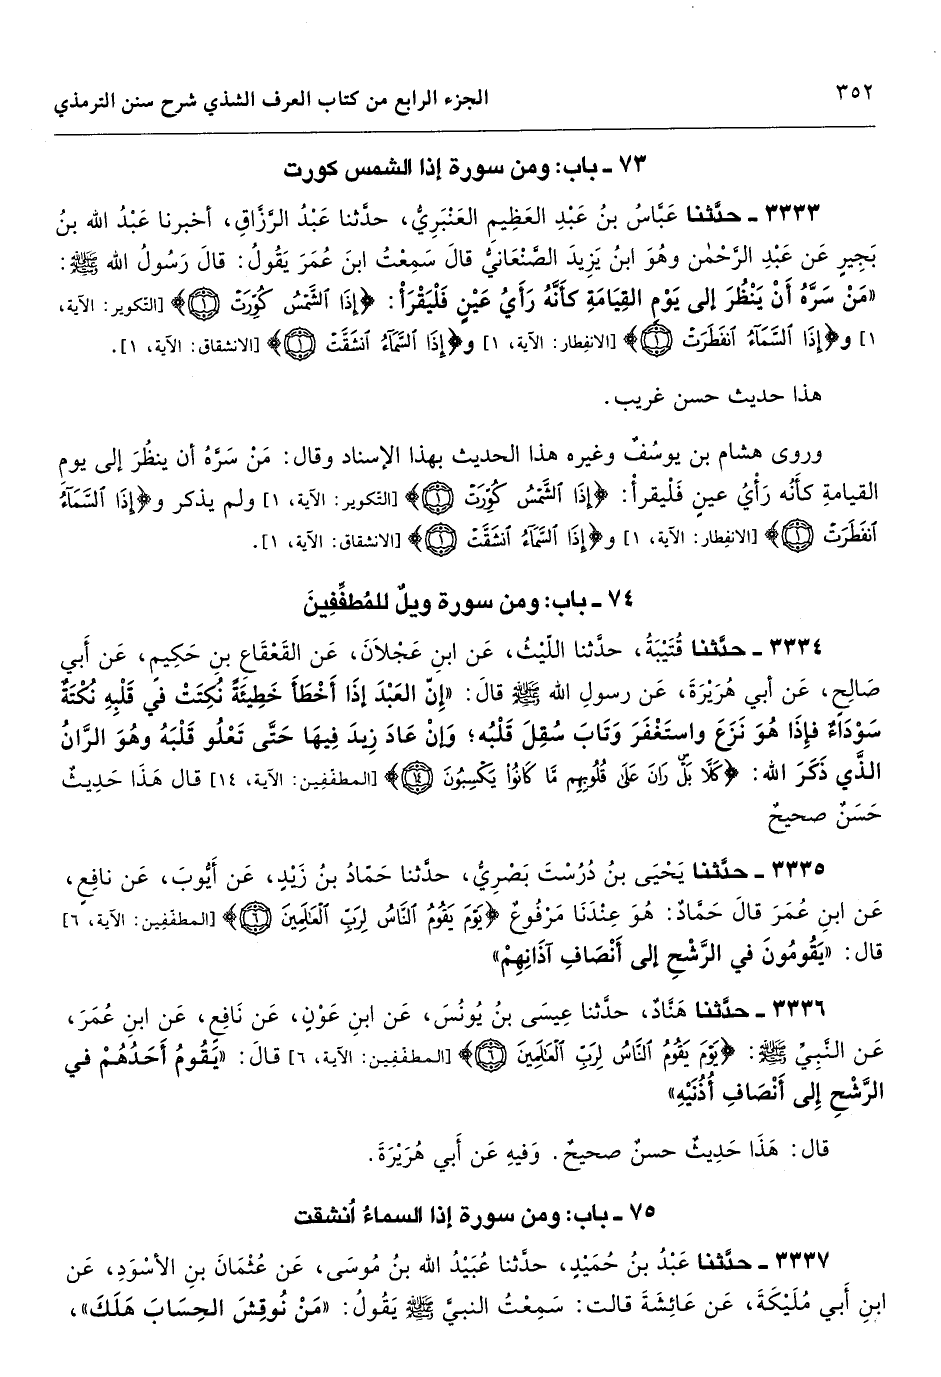 ٣٥٢ الجزء الرابع من كتاب العرف الشذي شرح سنن الترمذي
٧٣ ـ باب: ومن سورة إذا الشمس كورت
٣٣٣٣ ـ حدَّثنا عَبَّاسُ بنُ عَبْدِ العَظِيمِ العَنْبَرِيُّ، حدَّثنا عَبْدُ الرَّزَّاقِ، أخبرنا عَبْدُ الله بنُ
بَجِيرٍ عَن عَبْدِ الرَّحْمٰن وهُوَ ابنُ يَزِيدَ الصَّنْعَانيُّ قالَ سَمِعْتُ ابنَ عمَرَ يَقُولُ: قالَ رَسُولُ الله ﷺ:
«مَنْ سَرَّهُ أَنْ يَنْظُرَ إلى يَوْمِ القِيَامَةِ كأنَّهُ رَأيُ عَيْنٍ فَلْيَقْرَأْ: ﴿إِذَا ٱلشَّمْسُ كُوِّرَتْ ﴿١﴾﴾ [التكوير: الآية،
١] و﴿إِذَا ٱلسَّمَآءُ ٱنفَطَرَتْ ﴿١﴾﴾ [الانفِطار: الآية، ١] و﴿إِذَا ٱلسَّمَآءُ ٱنشَقَّتْ ﴿١﴾﴾ [الانشقاق: الآية، ١].
هذا حديث حسن غريب.
وروى هشام بن يوسُفٌ وغيره هذا الحديث بهذا الإسناد وقال: مَنْ سَرَّهُ أن ينظُرَ إلى يوم
القيامةِ كأنه رَأْيُ عينٍ فَلْيقرأْ: ﴿إِذَا ٱلشَّمْسُ كُوِّرَتْ ﴿١﴾﴾ [التكوير: الآية، ١] ولم يذكر و﴿إِذَا ٱلسَّمَآءُ
ٱنفَطَرَتْ ﴿١﴾﴾ [الانفِطار: الآية، ١] و﴿إِذَا ٱلسَّمَآءُ ٱنشَقَّتْ ﴿١﴾﴾ [الانشقاق: الآية، ١].
٧٤ ـ باب: ومن سورة ويلٌ للمُطفِّفِينَ
٣٣٣٤ ـ حدَّثنا قُتَيْبَةُ، حدَّثنا اللّيْثُ، عَن ابنِ عَجْلاَنَ، عَن القَعْقَاعِ بنِ حَكِيمٍ، عَن أَبي
صَالِحٍ، عَن أبي هُرَيْرَةَ، عَن رسولِ الله ﷺ قالَ: «إِنّ العَبْدَ إذَا أَخْطَأَ خَطِيئَةً نُكِتَتْ في قَلْبِهِ نُكْتَةٌ
سَوْدَاءُ فإِذَا هُوَ نَزَعَ واستَغْفَرَ وَتَابَ سُقِلَ قَلْبُه؛ وَإِنْ عَادَ زِيدَ فِيهَا حَتَّى تَعْلُو قَلْبَهُ وهُوَ الرَّانُ
الذَّي ذَكَرَ الله: ﴿كَلَّا بَلْ رَانَ عَلَى قُلُوبِهِم مَّا كَانُوا يَكْسِبُونَ ﴿١٤﴾﴾ [المطفّفِين: الآية، ١٤] قال هَذَا حَدِيثٌ
حَسَنٌ صحيحٌ
٣٣٣٥ ـ حدَّثنا يَحْيَى بنُ دُرُسْتَ بَصْرِيُّ، حدَّثنا حَمّادُ بنُ زَيْدٍ، عَن أَيُّوبَ، عَن نافِعٍ،
عَن ابنِ عمَرَ قالَ حَمَّادٌ: هُوَ عِنْدَنَا مَرْفُوعٌ ﴿يَوْمَ يَقُومُ ٱلنَّاسُ لِرَبِّ ٱلْعَالَمِينَ ﴿٦﴾﴾ [المطفّفِين: الآية، ٦]
قال: «يَقُومُونَ في الرَّشْحِ إلى أَنْصَافِ آذَانِهِمْ»
٣٣٣٦ ـ حدَّثنا هَنَّادٌ، حدَّثنا عِيسَى بنُ يُونُسَ، عَن ابنِ عَوْنٍ، عَن نَافِعٍ، عَن ابنِ عُمَرَ،
عَن النَّبيِّ ﷺ: ﴿يَوْمَ يَقُومُ ٱلنَّاسُ لِرَبِّ ٱلْعَالَمِينَ ﴿٦﴾﴾ [المطفّفِين: الآية، ٦] قالَ: «يَقُومُ أَحَدُهُمْ في
الرَّشْحِ إِلى أَنْصَافِ أُذُنَيْهِ»
قال: هَذَا حَدِيثٌ حسنٌ صحيحٌ. وَفيهِ عَن أَبي هُرَيْرَةَ.
٧٥ ـ باب: ومن سورة إذا السماءُ اُنشقت
٣٣٣٧ ـ حدَّثنا عَبْدُ بنُ حُمَيْدٍ، حدَّثنا عُبَيْدُ الله بنُ مُوسَى، عَن عُثْمَانَ بنِ الأسْوَدِ، عَن
ابنِ أَبي مُلَيْكَةَ، عَن عَائِشَةَ قالت: سَمِعْتُ النبيَّ ﷺ يَقُولُ: «مَنْ نُوقِشَ الحِسَابَ هَلَكَ»،